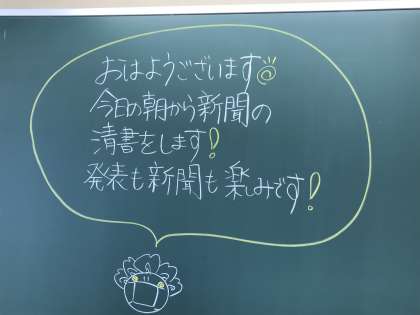 おはようございます
今日の朝から新聞の
清書をします!
発表も新聞も楽しみです!